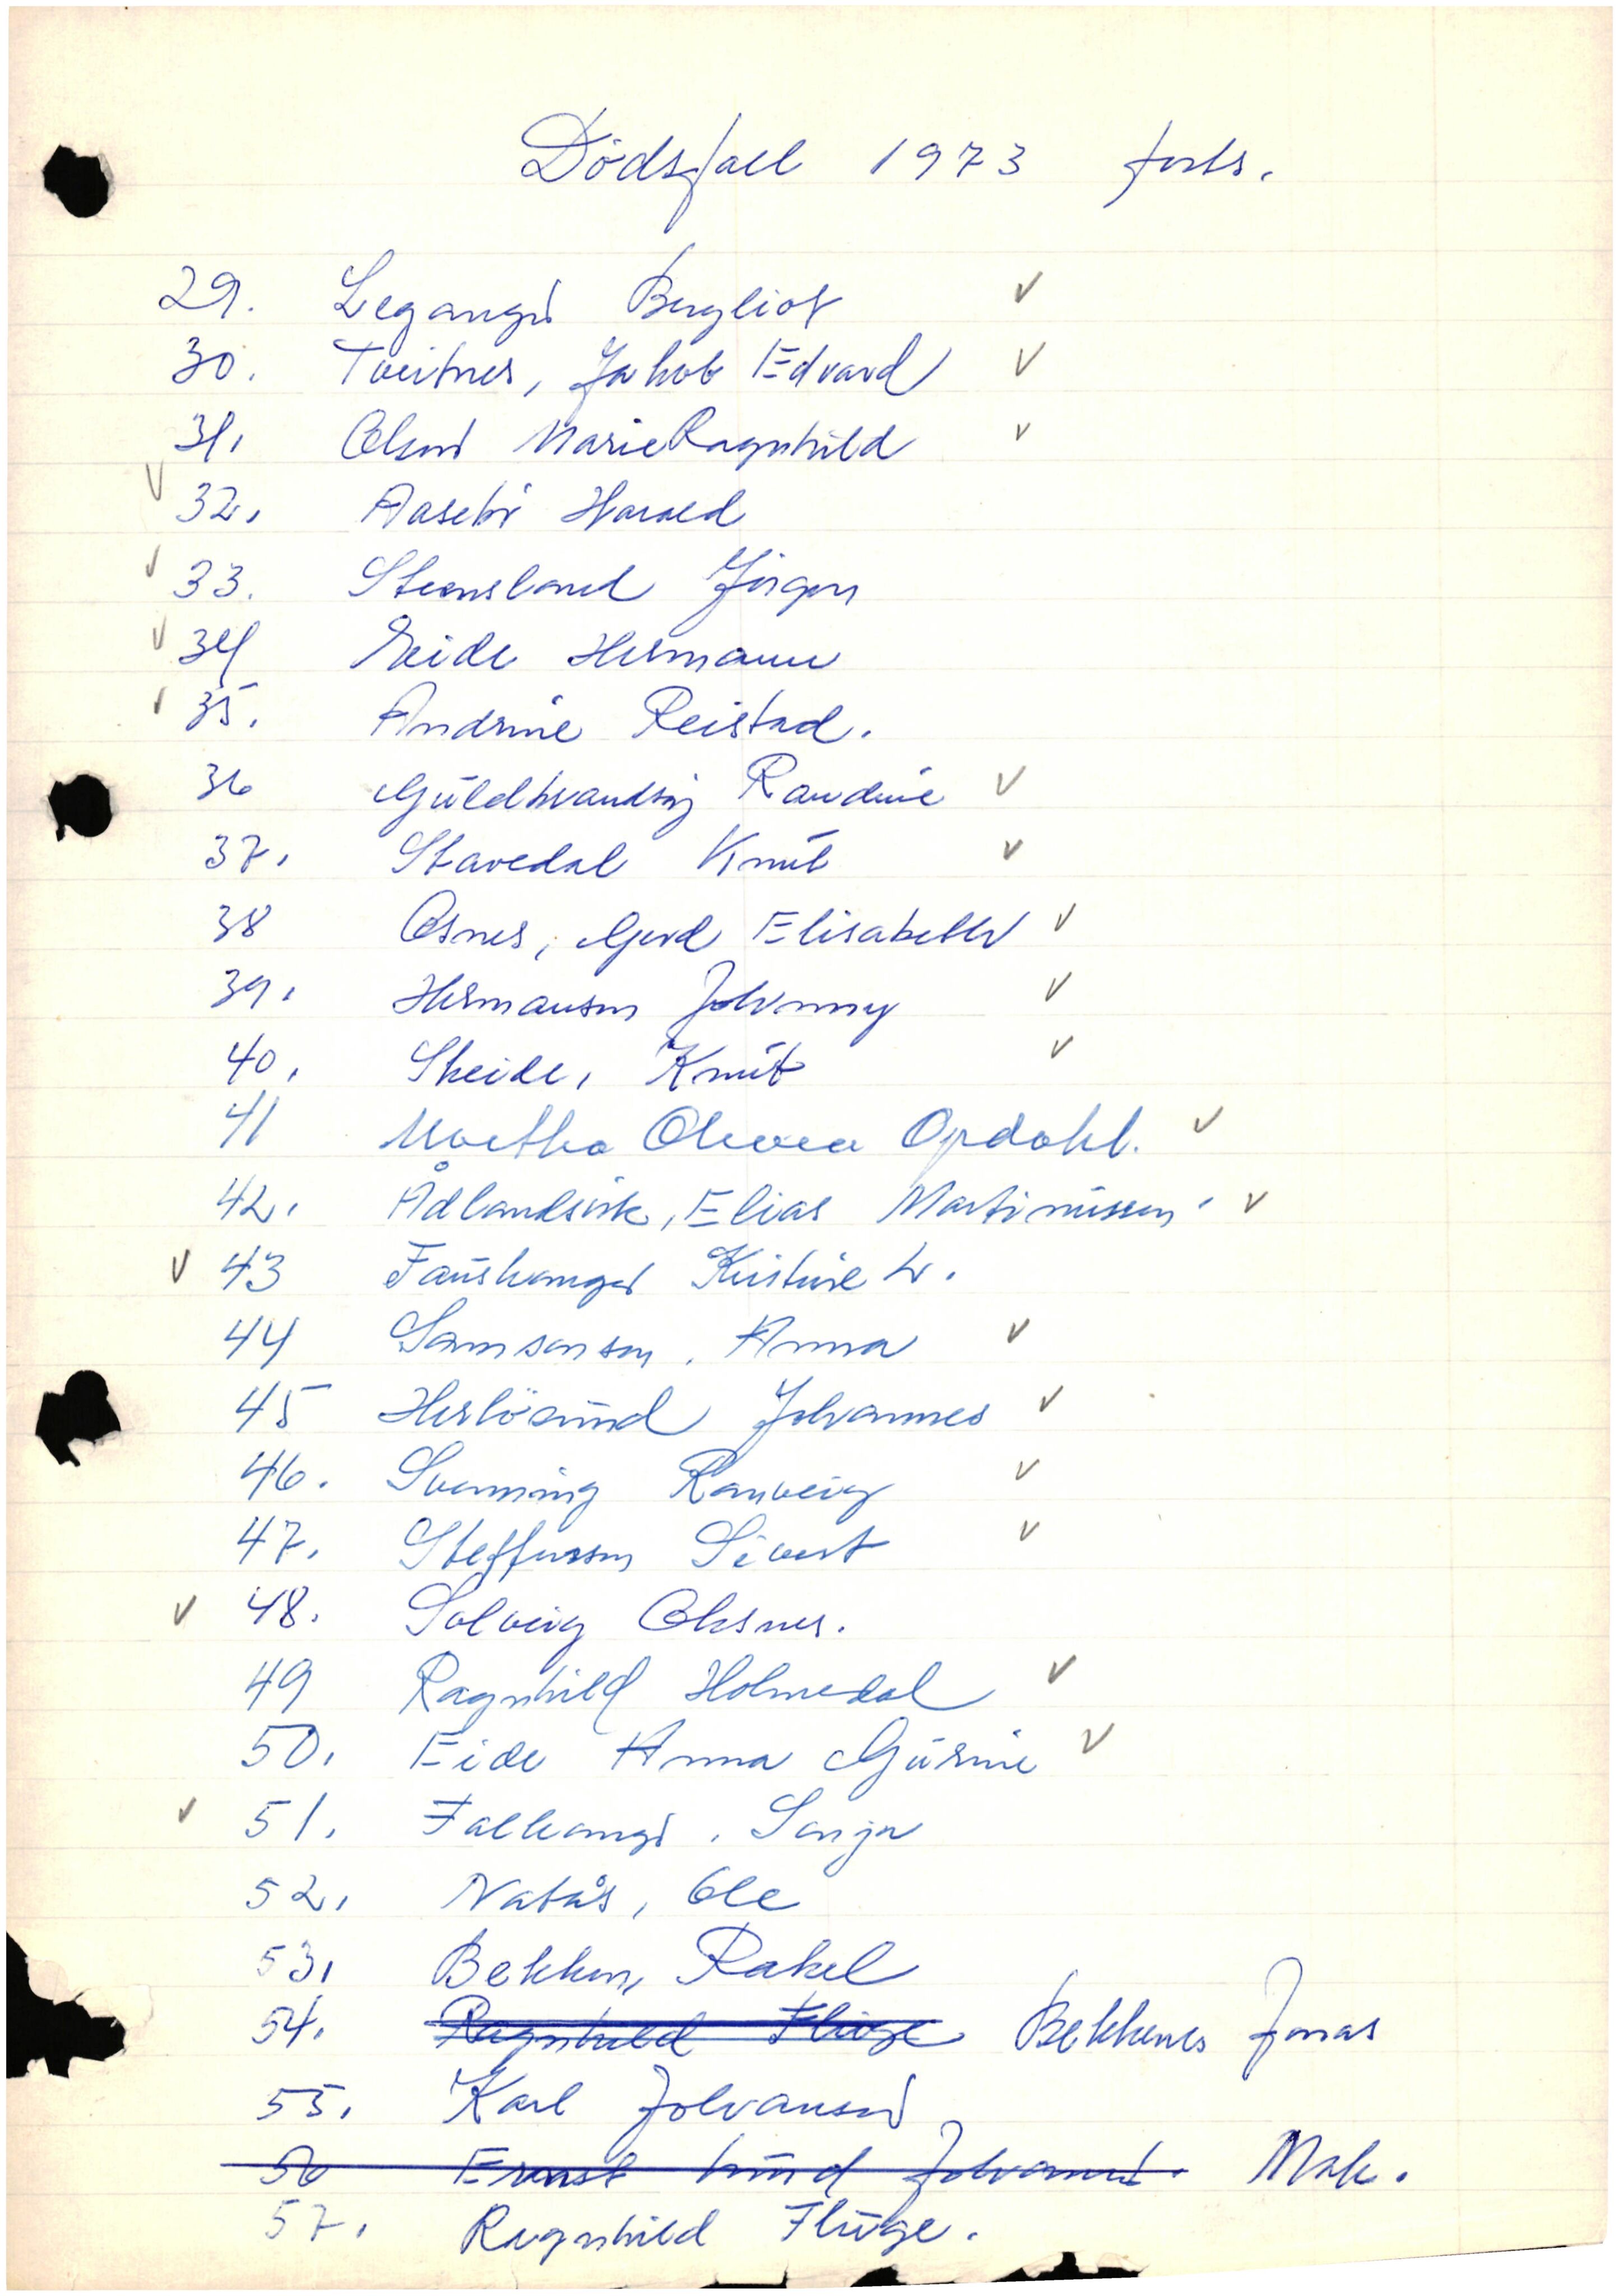 Dödsfall 1973 forts.
29. Leganger Bergliot
30. Tveitnes, Jakob Edvard
31. Olsen Marie Ragnhild
32. Aasebø Harald
33. Steensland Jörgen
34 Eide Hermann
35. Andrine Reistad.
36 Guldbrandsöy Randine
37. Stavedal Knut
38 Osnes, Gerd Elisabeth
39. Hermansen Johnny
40. Skeide, Knut
41 Martha Oleva Opdahl.
42. Ådlandsvik, Elias Martinussen.
43 Fauskanger Kristine L.
44 Samsonsen, Anna
45 Herlösund Johannes
46. Svenning Ranveig
47. Steffensen Sivert
48. Solveig Oksnes.
49 Ragnhild Holmedal
50. Eide Anna Gurine
51. Falkanger, Sonja
52. Natås, Ole
53. Bekken, Rakel
54. Ragnhild Fluge Bekkenes Jonas
55. Karl Johansen
56 Ernst Lund Johannes. Mak.
57. Ragnhild Fluge.